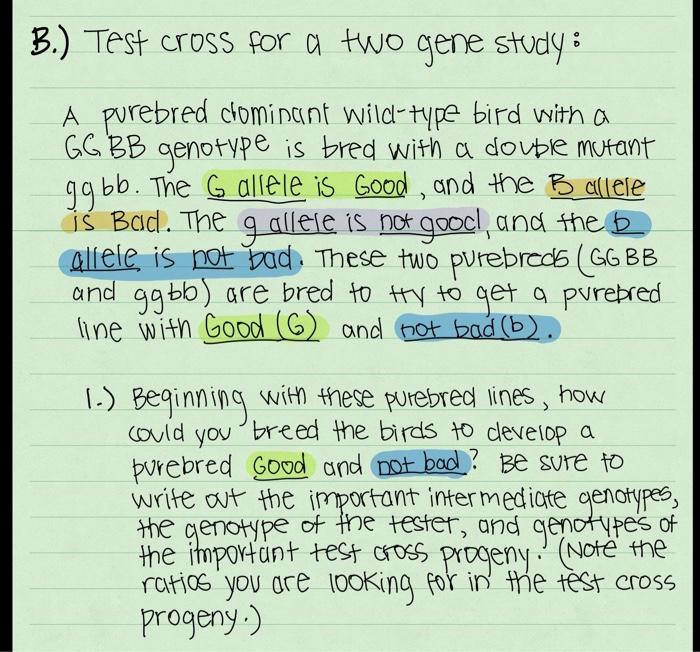 B.) Test cross for a two gene study:
A purebred dominant wild-type bird with a
GG BB genotype is bred with a double mutant
ggbb. The G allele is Good, and the B allele
is Bad. The g allele is not good, and the b
allele is not bad. These two purebreds (GGBB
and ggbb) are bred to try to get a purebred
line with Good (G) and not bad (b).
1.) Beginning with these purebred lines, how
could you breed the birds to develop a
purebred Good and not bad? Be sure to
write out the important intermediate genotypes,
the genotype of the tester, and genotypes of
the important test cross progeny. (Note the
ratios you are looking for in the test cross
progeny.)